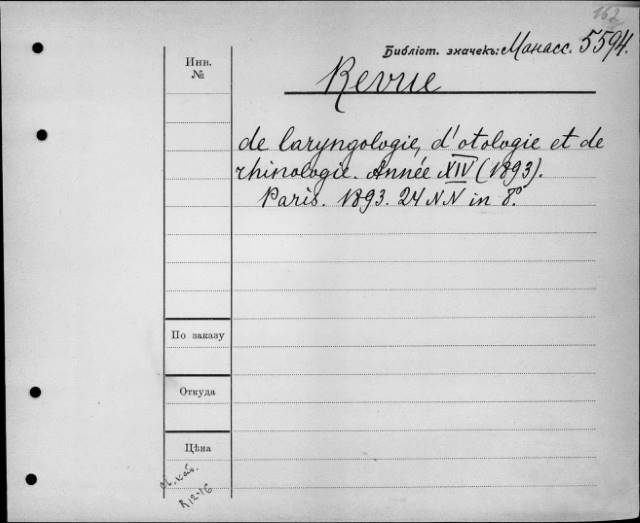 162
Библіот. значекъ: Манасс. 5594.
Инв.
№
Revue
de laryngologie, d'otologie et de
rhinologie. Année XIV (1893).
Paris. 1893. 24 NN in 8°.
По заказу
Откуда
Цѣна
R 12-16